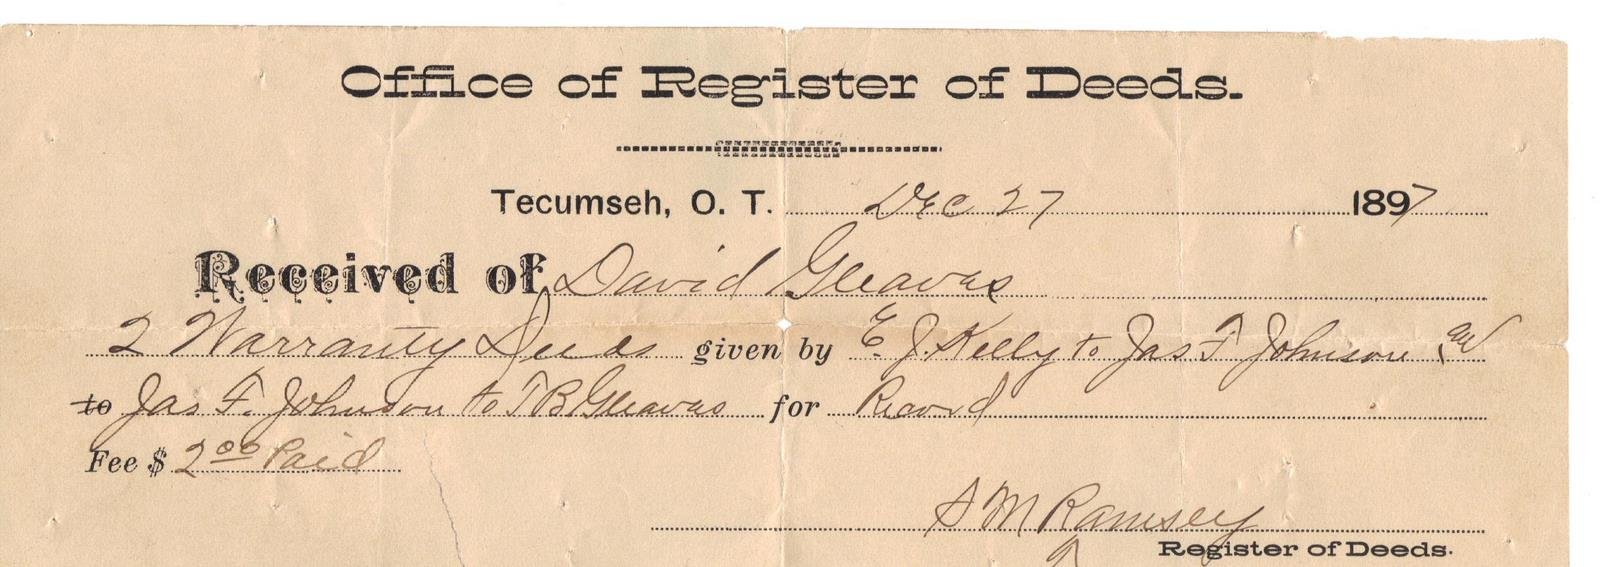 Office of Register of Deeds.
Tecumseh, O. T. Dec 27 1897
Received of David Gleaves
2 Warranty Deeds given by E. J. Kelly to Jas F Johnson
to Jas F. Johnson to T B Gleaves for Record
Fee $ 2 00 Paid
S M Ramsey
Register of Deeds.